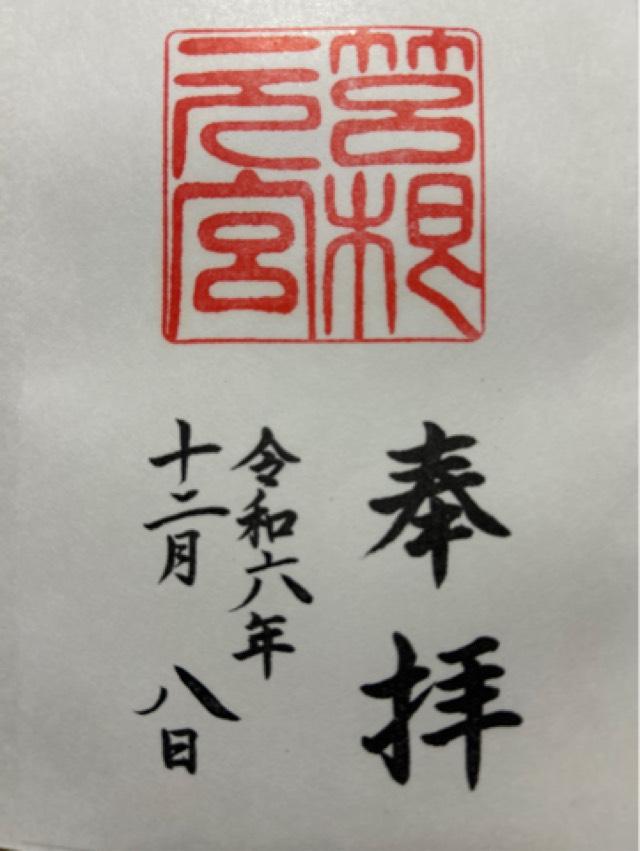 筥根
元宮
奉拝
令和六年
十二月 八日